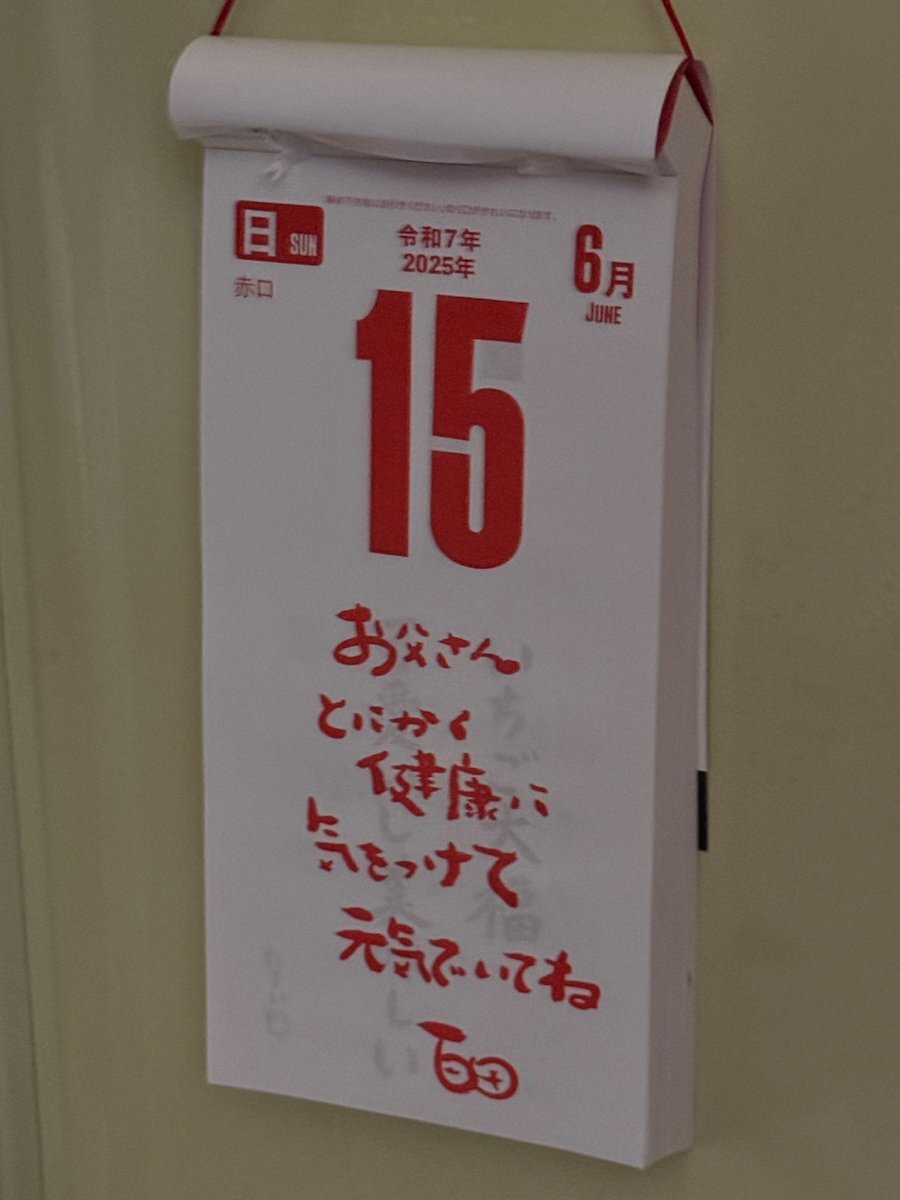 日 SUN
赤口
令和7年
2025年
6月
JUNE
15
お父さん
とにかく
健康に
気をつけて
元気でいてね